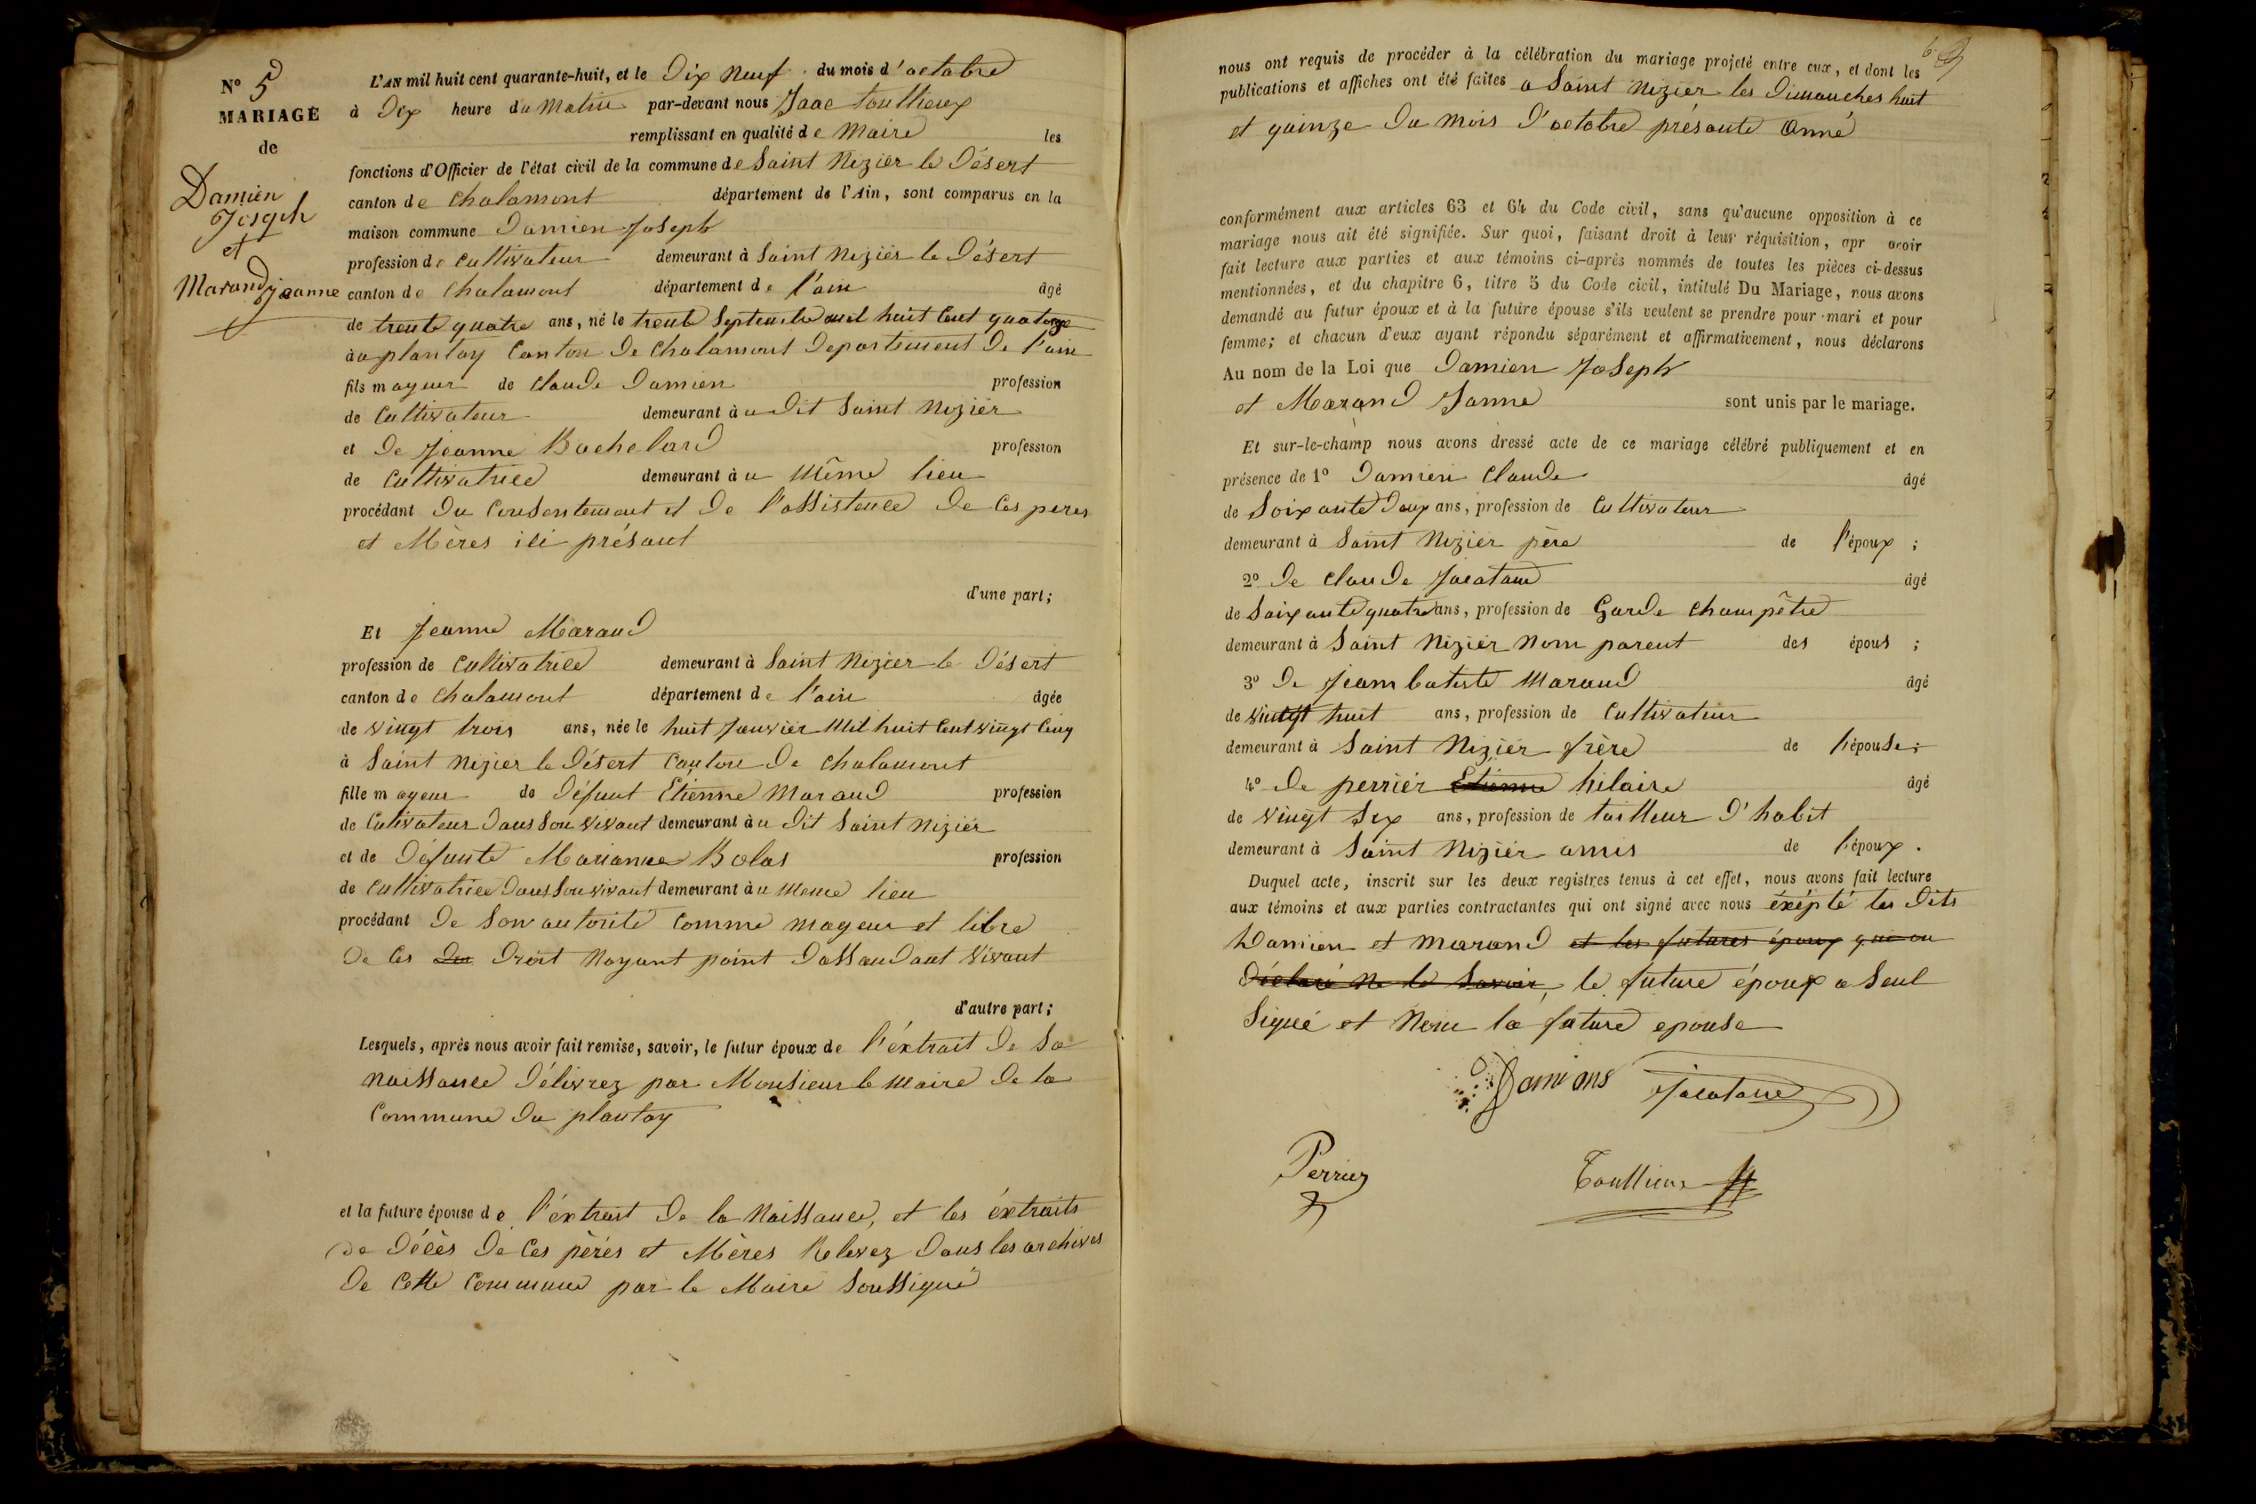 N° 5
MARIAGE
de
Damien
Joseph
et
Marand
Jeanne
L'AN mil huit cent quarante-huit, et le Dix Neuf du mois d'octobre
à Dix heure du Matin par-devant nous Isaac Toullieux
remplissant en qualité de Maire les
fonctions d'Officier de l'état civil de la commune de Saint Nizier le Désert
canton de Chalamont département de l'Ain, sont comparus en la
maison commune Damien Joseph
profession de Cultivateur demeurant à Saint Nizier le Désert
canton de Chalamont département de l'ain âgé
de trente quatre ans, né le trente Septembre mil huit Cent quatorze
au plantay Canton De Chalamont Departement De l'ain
fils mageur de Claude Damien profession
de Cultivateur demeurant au Dit Saint Nizier
et De Jeanne Bachelard profession
de Cultivatrice demeurant au Même lieu
procédant Du Consentement et De l'assistence De Ces peres
et Mères ici présant
d'une part;
Et Jeanne Marand
profession de Cultivatrice demeurant à Saint Nizier le Désert
canton de Chalamont département de l'ain âgée
de vingt trois ans, née le huit Janvier Mil huit Cent vingt Cinq
à Saint Nizier le Désert Canton De Chalamont
fille mageur de Défunt Etienne Marand profession
de Cutivateur Dans Son vivant demeurant au Dit Saint Nizier
et de Défunte Marianne Bolas profession
de Cultivatrice Dans Son vivant demeurant au Meme lieu
procédant De Son autorité Comme mageur et libre
De Ces Du Droit Nayant point Dassandant Vivant
d'autre part;
Lesquels, après nous avoir fait remise, savoir, le futur époux de l'éxtrait De Sa
naissance Délivrez par Monsieur le Maire De la
Commune Du plantay
et la future épouse de l'éxtrait De la Naissance, et les éxtraits
De Décès De Ces pères et Mères Relevez Dans les archives
De Cette Commune par le Maire Soussigné
6
nous ont requis de procéder à la célébration du mariage projeté entre eux, et dont les
publications et affiches ont été faites a Saint Nizier les Dimanches huit
et quinze Du Mois D'octobre présante Anné
conformément aux articles 63 et 64 du Code civil, sans qu'aucune opposition à ce
mariage nous ait été signifiée. Sur quoi, faisant droit à leur réquisition, apr avoir
fait lecture aux parties et aux témoins ci-après nommés de toutes les pièces ci-dessus
mentionnées, et du chapitre 6, titre 5 du Code civil, intitulé Du Mariage, nous avons
demandé au futur époux et à la future épouse s'ils veulent se prendre pour mari et pour
femme; et chacun d'eux ayant répondu séparément et affirmativement, nous déclarons
Au nom de la Loi que Damien Joseph
et Marand Janne sont unis par le mariage.
Et sur-le-champ nous avons dressé acte de ce mariage célébré publiquement et en
présence de 1° Damien Claude âgé
de Soixante Deux ans, profession de Cultivateur
demeurant à Saint Nizier père de l'époux ;
2° De Claude Jacatane âgé
de Soixante quatre ans, profession de Garde Champêtre
demeurant à Saint Nizier Nom parent des épous ;
3° De Jeam batiste Marand âgé
de vingt huit ans, profession de Cultivateur
demeurant à Saint Nizier frère de l'épouse ;
4° De perrier Etienne hilaire âgé
de vingt Six ans, profession de tailleur D'habit
demeurant à Saint Nizier amis de l'époux .
Duquel acte, inscrit sur les deux registres tenus à cet effet, nous avons fait lecture
aux témoins et aux parties contractantes qui ont signé avec nous éxépté les Dits
Damien et Marand et les futures époux qui on
Déclaré ne le Savoir, le future époux a Seul
Signé et Nom la future epouse
Damians Jacatane
Perrier
Toullieux